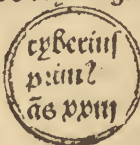 tyberius
primꝰ
ãs xxiii